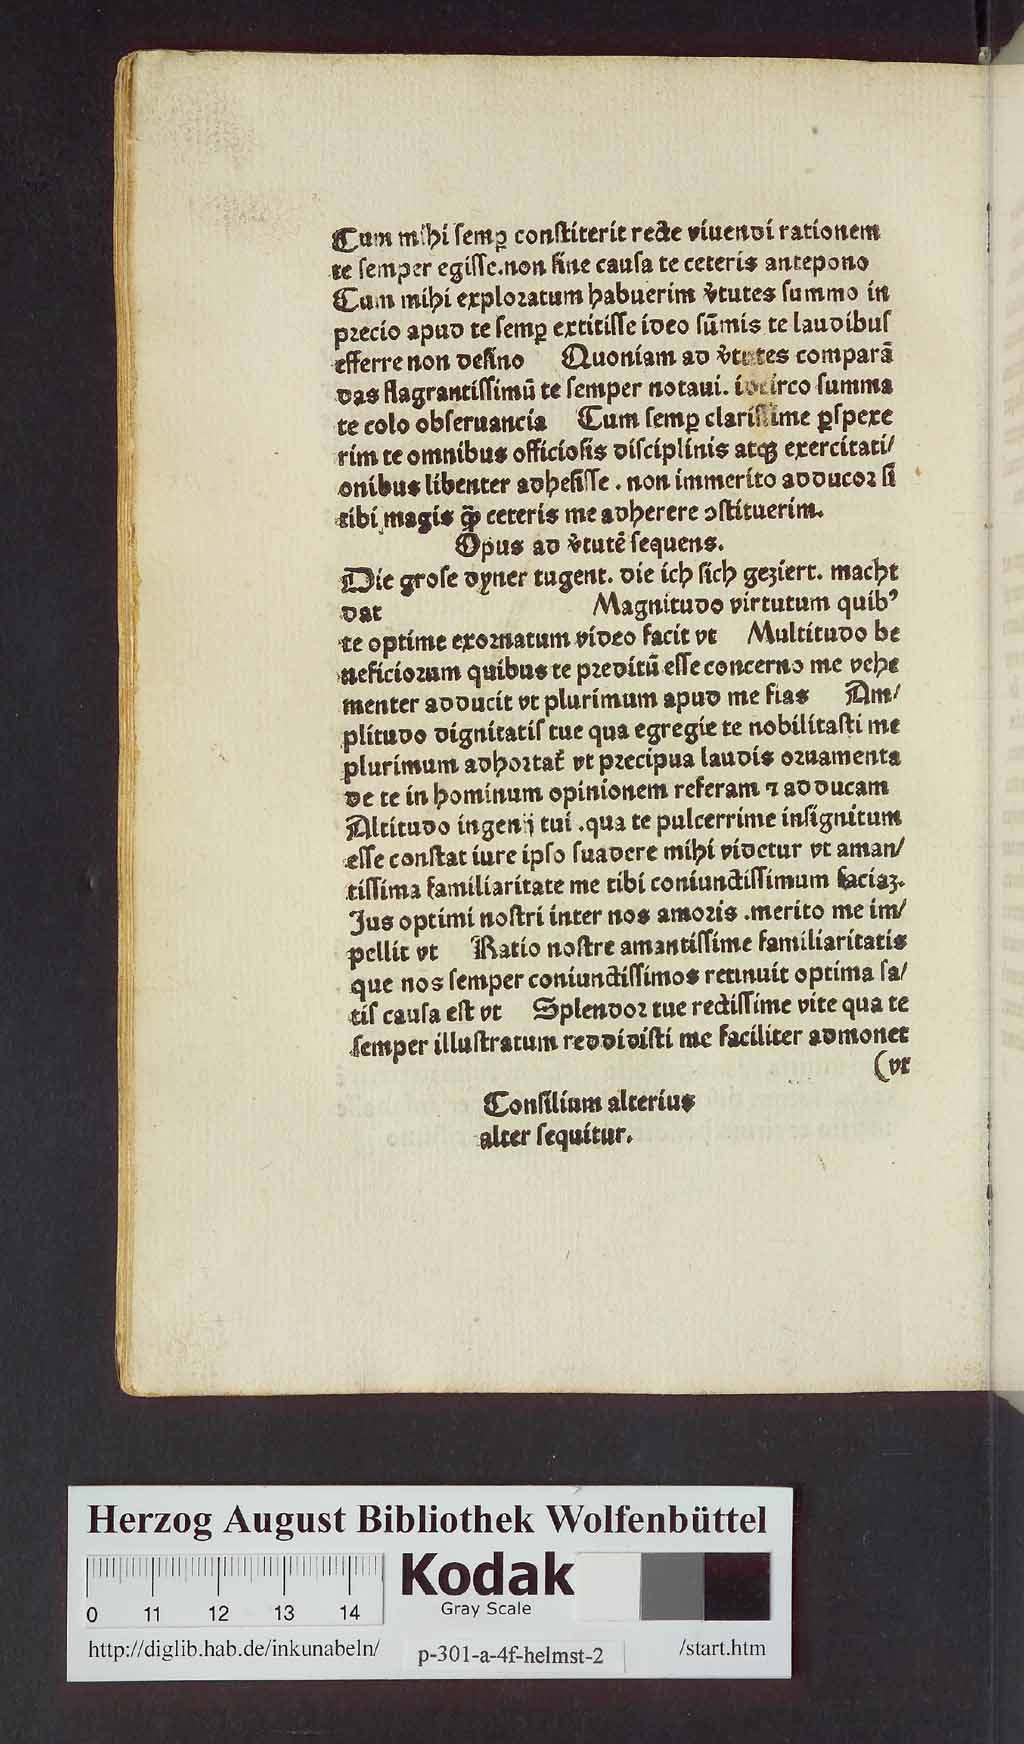 Cum mihi semꝑ constiterit recte viuendi rationem
te semper egisse.non sine causa te ceteris antepono
Cum mihi exploratum habuerim v̾tutes summo in
precio apud te semꝑ extitisse ideo sūmis te laudibus
efferre non desino Quoniam ad v̾tutes comparā
das flagrantissimū te semper notaui. idcirco summa
te colo obseruancia Cum semꝑ clarissime ꝑspexe
rim te omnibus officiosis disciplinis atqꝫ exercitati/
onibus libenter adhesisse . non immerito adducor si
tibi magis q̄ꝫ ceteris me adherere ꝯstituerim.
Opus ad v̾tutē sequens.
Die grose dyner tugent. die ich sich geziert. macht
dat Magnitudo virtutum quibꝰ
te optime exornatum video facit vt Multitudo be
neficiorum quibus te preditū esse concerno me vehe
menter adducit vt plurimum apud me fias Am/
plitudo dignitatis tue qua egregie te nobilitasti me
plurimum adhortat᷑ vt precipua laudis ornamenta
de te in hominum opinionem referam ⁊ adducam
Altitudo ingenij tui .qua te pulcerrime insignitum
esse constat iure ipso suadere mihi videtur vt aman/
tissima familiaritate me tibi coniunctissimum faciaꝫ.
Jus optimi nostri inter nos amoris .merito me im/
pellit vt Ratio nostre amantissime familiaritatis
que nos semper coniunctissimos retinuit optima sa/
tis causa est vt Splendor tue rectissime vite qua te
semper illustratum reddidisti me faciliter admonet
(vt
Consilium alterius
alter sequitur.
Herzog August Bibliothek Wolfenbüttel
Kodak
Gray Scale
0 11 12 13 14
http://diglib.hab.de/inkunabeln/ p-301-a-4f-helmst-2 /start.htm